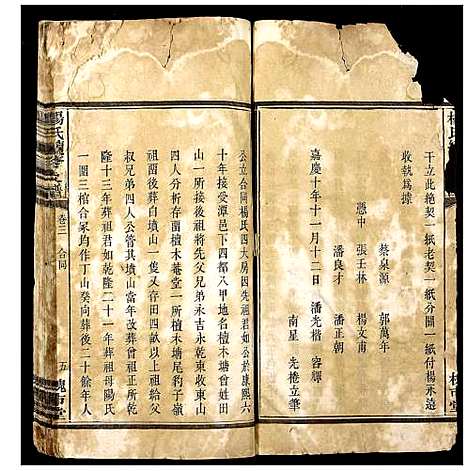 楊氏
干立此絶契一紙老契一紙分圖一紙付楊永遠
收執爲據
憑中 蔡泉源 郭萬年
張玉林 楊文甫
潘良才 潘正朝
嘉慶十年十一月十二日 潘光楷 容繹
南星 先捲立筆
公立合同楊氏四大房因先祖君如公於康熙六
十年接受潭邑下四都八甲地名檀木塘曾姓田
山一所接後祖將先父兄弟永吉永乾東收東山
四人分析存圖檀木菴堂一所檀木塘尾豹子嶺
祖面後葬白墳山一隻又存田四畝以以上祖
叔兄弟四人公管其墳山當年改葬曾祖正所乾
隆十三年葬祖君如乾隆二十一年葬祖母陽氏
一圍三棺合冢均作丁山癸向葬後二十餘年人
楊氏
卷三 合同
五